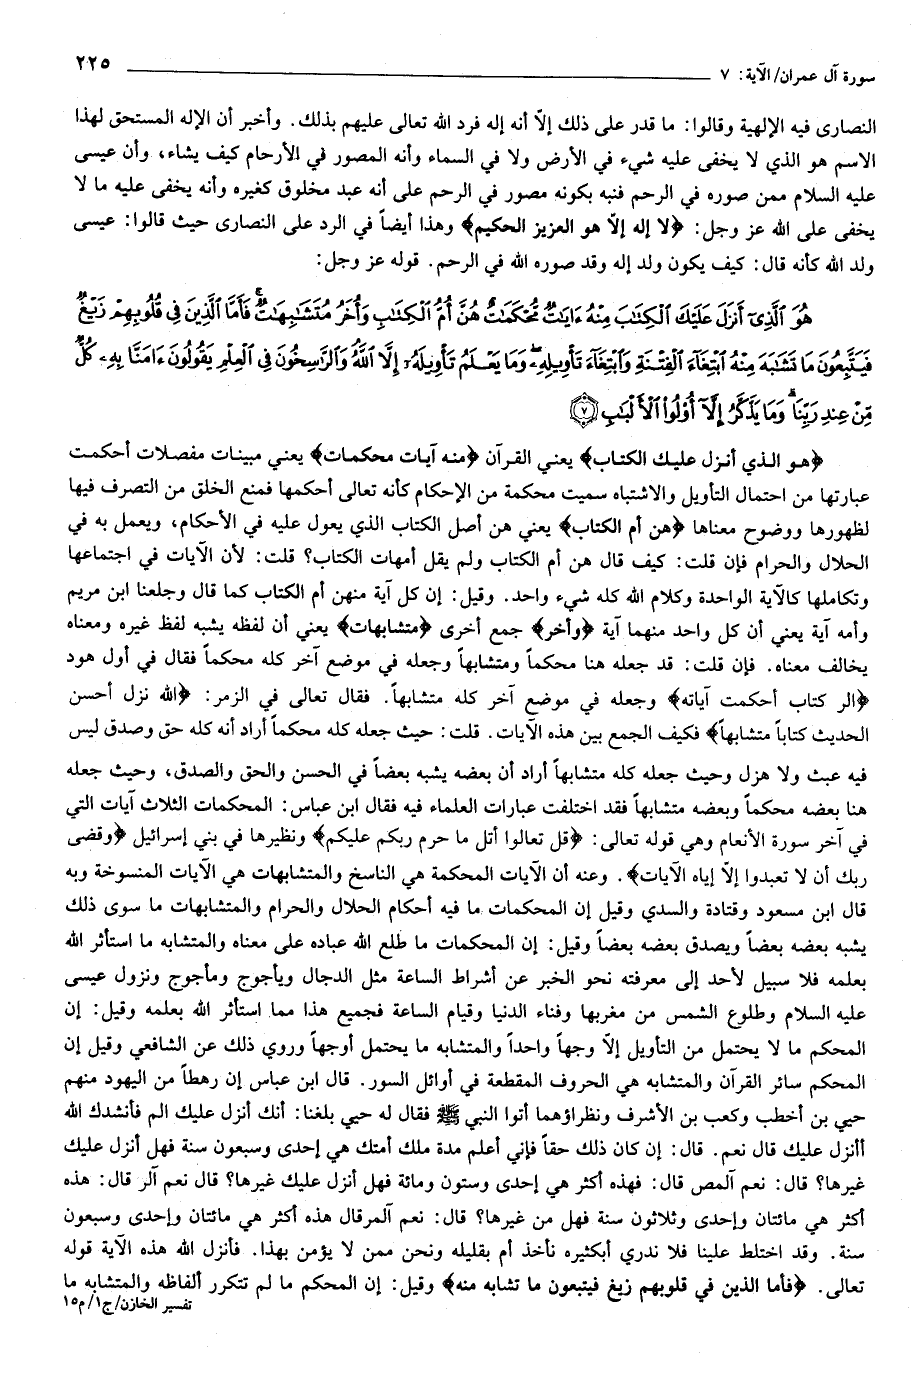 سورة آل عمران/ الآية: ٧ ٢٢٥
النصارى فيه الإلهية وقالوا: ما قدر على ذلك إلاّ أنه إله فرد الله تعالى عليهم بذلك. وأخبر أن الإله المستحق لهذا
الاسم هو الذي لا يخفى عليه شيء في الأرض ولا في السماء وأنه المصور في الأرحام كيف يشاء، وأن عيسى
عليه السلام ممن صوره في الرحم فنبه بكونه مصور في الرحم على أنه عبد مخلوق كغيره وأنه يخفى عليه ما لا
يخفى على الله عز وجل: ﴿لا إله إلاّ هو العزيز الحكيم﴾ وهذا أيضاً في الرد على النصارى حيث قالوا: عيسى
ولد الله كأنه قال: كيف يكون ولد إله وقد صوره الله في الرحم. قوله عز وجل:
هُوَ ٱلَّذِىٓ أَنزَلَ عَلَيْكَ ٱلْكِتَٰبَ مِنْهُ ءَايَٰتٌ مُّحْكَمَٰتٌ هُنَّ أُمُّ ٱلْكِتَٰبِ وَأُخَرُ مُتَشَٰبِهَٰتٌ ۖ فَأَمَّا ٱلَّذِينَ فِى قُلُوبِهِمْ زَيْغٌ
فَيَتَّبِعُونَ مَا تَشَٰبَهَ مِنْهُ ٱبْتِغَآءَ ٱلْفِتْنَةِ وَٱبْتِغَآءَ تَأْوِيلِهِۦ ۗ وَمَا يَعْلَمُ تَأْوِيلَهُۥٓ إِلَّا ٱللَّهُ وَٱلرَّٰسِخُونَ فِى ٱلْعِلْمِ يَقُولُونَ ءَامَنَّا بِهِۦ كُلٌّ
مِّنْ عِندِ رَبِّنَا ۗ وَمَا يَذَّكَّرُ إِلَّآ أُو۟لُوا۟ ٱلْأَلْبَٰبِ ٧
﴿هو الذي أنزل عليك الكتاب﴾ يعني القرآن ﴿منه آيات محكمات﴾ يعني مبينات مفصلات أحكمت
عبارتها من احتمال التأويل والاشتباه سميت محكمة من الإحكام كأنه تعالى أحكمها فمنع الخلق من التصرف فيها
لظهورها ووضوح معناها ﴿هن أم الكتاب﴾ يعني هن أصل الكتاب الذي يعول عليه في الأحكام، ويعمل به في
الحلال والحرام فإن قلت: كيف قال هن أم الكتاب ولم يقل أمهات الكتاب؟ قلت: لأن الآيات في اجتماعها
وتكاملها كالآية الواحدة وكلام الله كله شيء واحد. وقيل: إن كل آية منهن أم الكتاب كما قال وجلعنا ابن مريم
وأمه آية يعني أن كل واحد منهما آية ﴿وأخر﴾ جمع أخرى ﴿متشابهات﴾ يعني أن لفظه يشبه لفظ غيره ومعناه
يخالف معناه. فإن قلت: قد جعله هنا محكماً ومتشابهاً وجعله في موضع آخر كله محكماً فقال في أول هود
﴿الر كتاب أحكمت آياته﴾ وجعله في موضع آخر كله متشابهاً. فقال تعالى في الزمر: ﴿الله نزل أحسن
الحديث كتاباً متشابهاً﴾ فكيف الجمع بين هذه الآيات. قلت: حيث جعله كله محكماً أراد أنه كله حق وصدق ليس
فيه عبث ولا هزل وحيث جعله كله متشابهاً أراد أن بعضه يشبه بعضاً في الحسن والحق والصدق، وحيث جعله
هنا بعضه محكماً وبعضه متشابهاً فقد اختلفت عبارات العلماء فيه فقال ابن عباس: المحكمات الثلاث آيات التي
في آخر سورة الأنعام وهي قوله تعالى: ﴿قل تعالوا أتل ما حرم ربكم عليكم﴾ ونظيرها في بني إسرائيل ﴿وقضى
ربك أن لا تعبدوا إلاّ إياه الآيات﴾. وعنه أن الآيات المحكمة هي الناسخ والمتشابهات هي الآيات المنسوخة وبه
قال ابن مسعود وقتادة والسدي وقيل إن المحكمات ما فيه أحكام الحلال والحرام والمتشابهات ما سوى ذلك
يشبه بعضه بعضاً ويصدق بعضه بعضاً وقيل: إن المحكمات ما طلع الله عباده على معناه والمتشابه ما استأثر الله
بعلمه فلا سبيل لأحد إلى معرفته نحو الخبر عن أشراط الساعة مثل الدجال ويأجوج ومأجوج ونزول عيسى
عليه السلام وطلوع الشمس من مغربها وفناء الدنيا وقيام الساعة فجميع هذا مما استأثر الله بعلمه وقيل: إن
المحكم ما لا يحتمل من التأويل إلاّ وجهاً واحداً والمتشابه ما يحتمل أوجهاً وروي ذلك عن الشافعي وقيل إن
المحكم سائر القرآن والمتشابه هي الحروف المقطعة في أوائل السور. قال ابن عباس إن رهطاً من اليهود منهم
حيي بن أخطب وكعب بن الأشرف ونظراؤهما أتوا النبي ﷺ فقال له حيي بلغنا: أنك أنزل عليك الم فأنشدك الله
أأنزل عليك قال نعم. قال: إن كان ذلك حقاً فإني أعلم مدة ملك أمتك هي إحدى وسبعون سنة فهل أنزل عليك
غيرها؟ قال: نعم آلمص قال: فهذه أكثر هي إحدى وستون ومائة فهل أنزل عليك غيرها؟ قال نعم آلر قال: هذه
أكثر هي مائتان وإحدى وثلاثون سنة فهل من غيرها؟ قال: نعم آلمرقال هذه أكثر هي مائتان وإحدى وسبعون
سنة. وقد اختلط علينا فلا ندري أبكثيره نأخذ أم بقليله ونحن ممن لا يؤمن بهذا. فأنزل الله هذه الآية قوله
تعالى. ﴿فأما الذين في قلوبهم زيغ فيتبعون ما تشابه منه﴾ وقيل: إن المحكم ما لم تتكرر ألفاظه والمتشابه ما
تفسير الخازن/ج١/م١٥